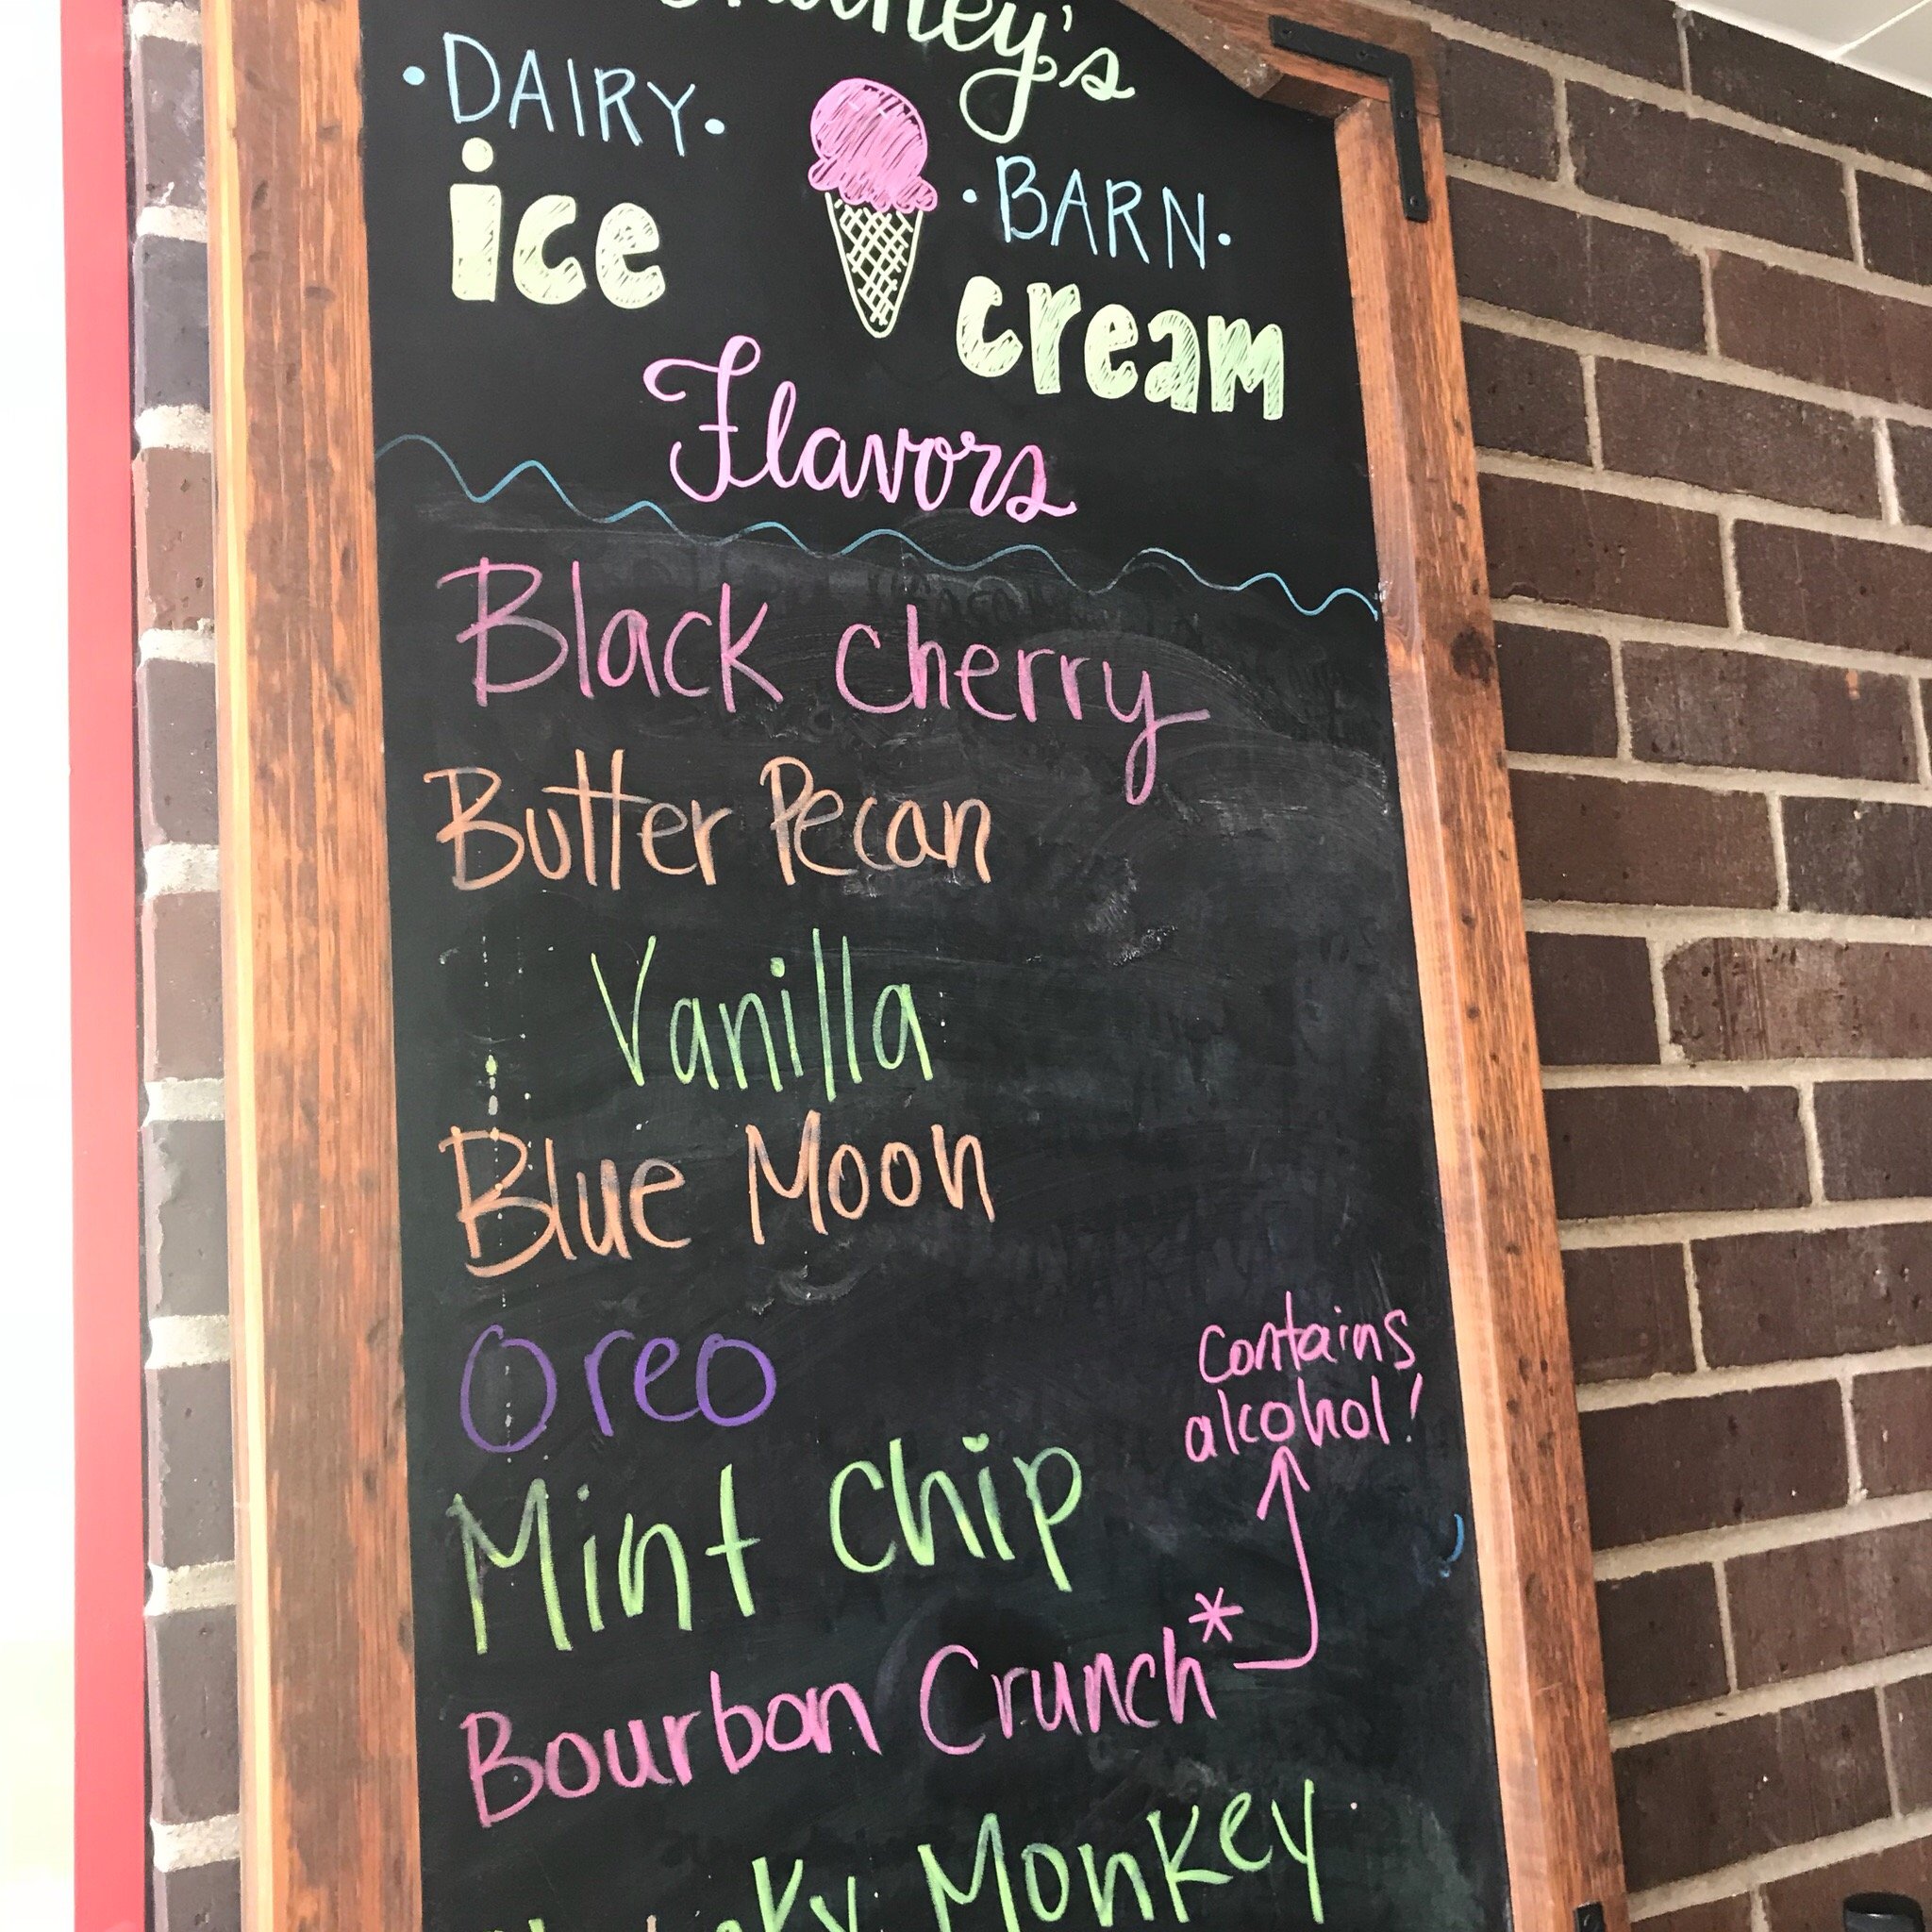 ·DAIRY·
·BARN·
ice cream
Flavors
Black cherry
Butter Pecan
Vanilla
Blue Moon
Oreo
contains
alcohol!
Mint Chip
Bourbon Crunch*
Monkey